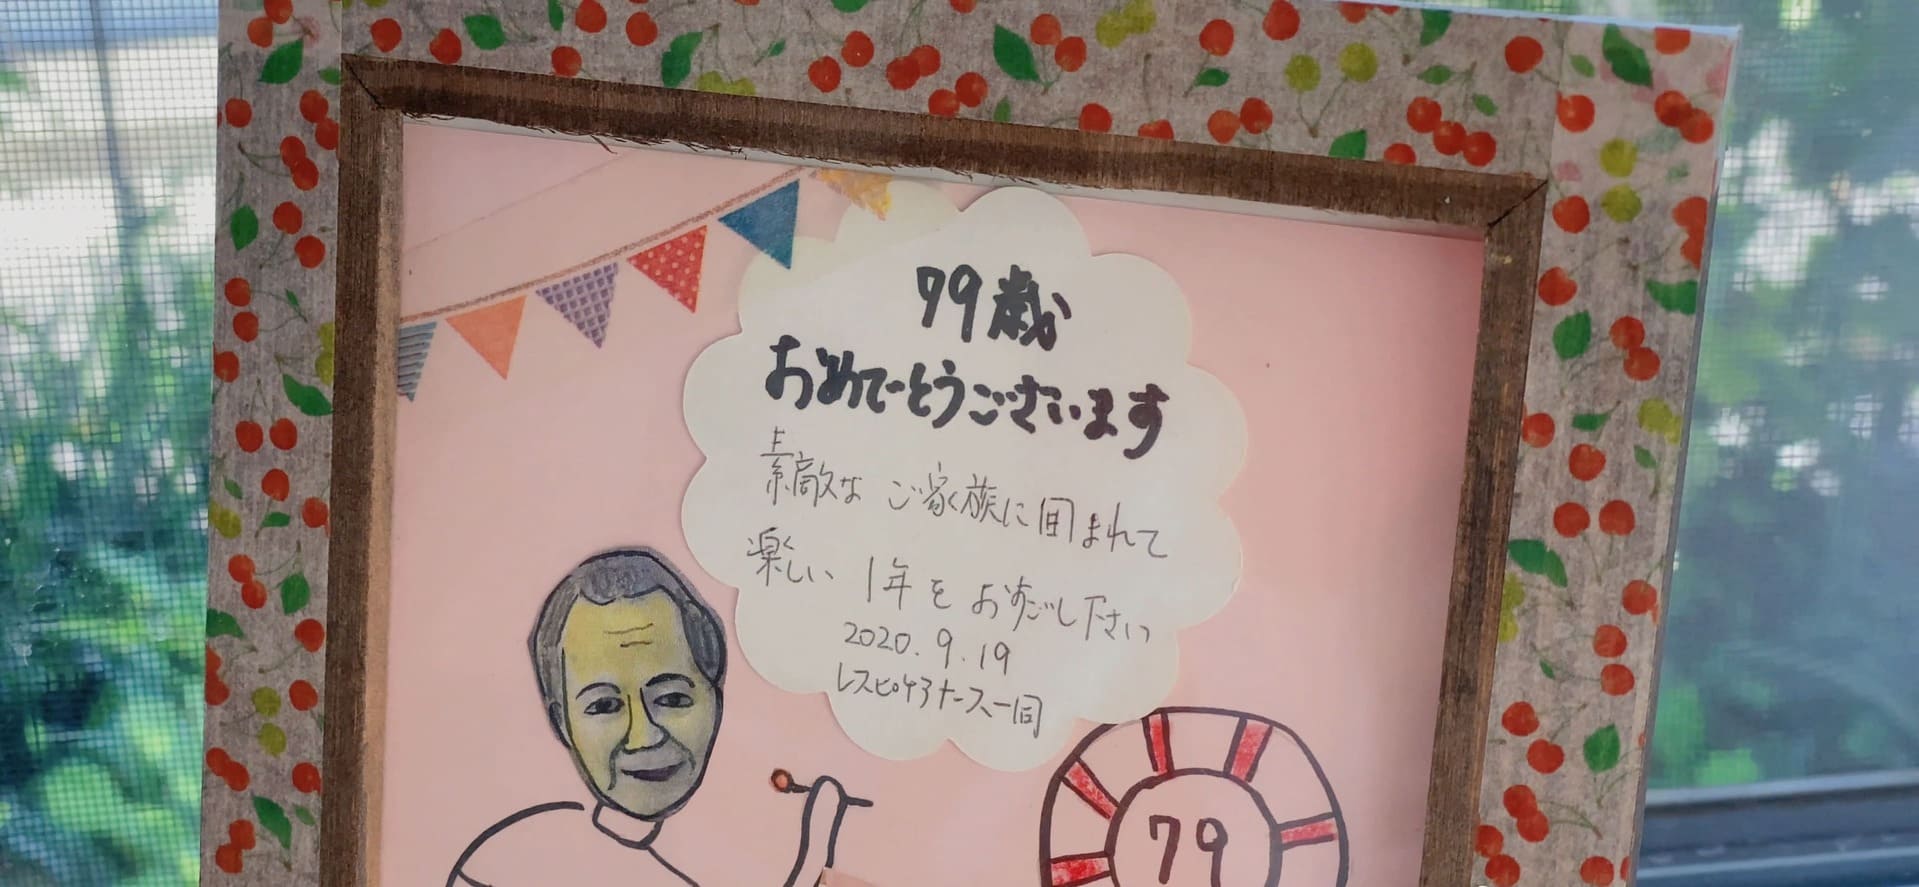 79歳
おめでとうございます
素敵な ご家族に囲まれて
楽しい 1年を おすごし下さい
2020.9.19
レスピケアナース一同
79